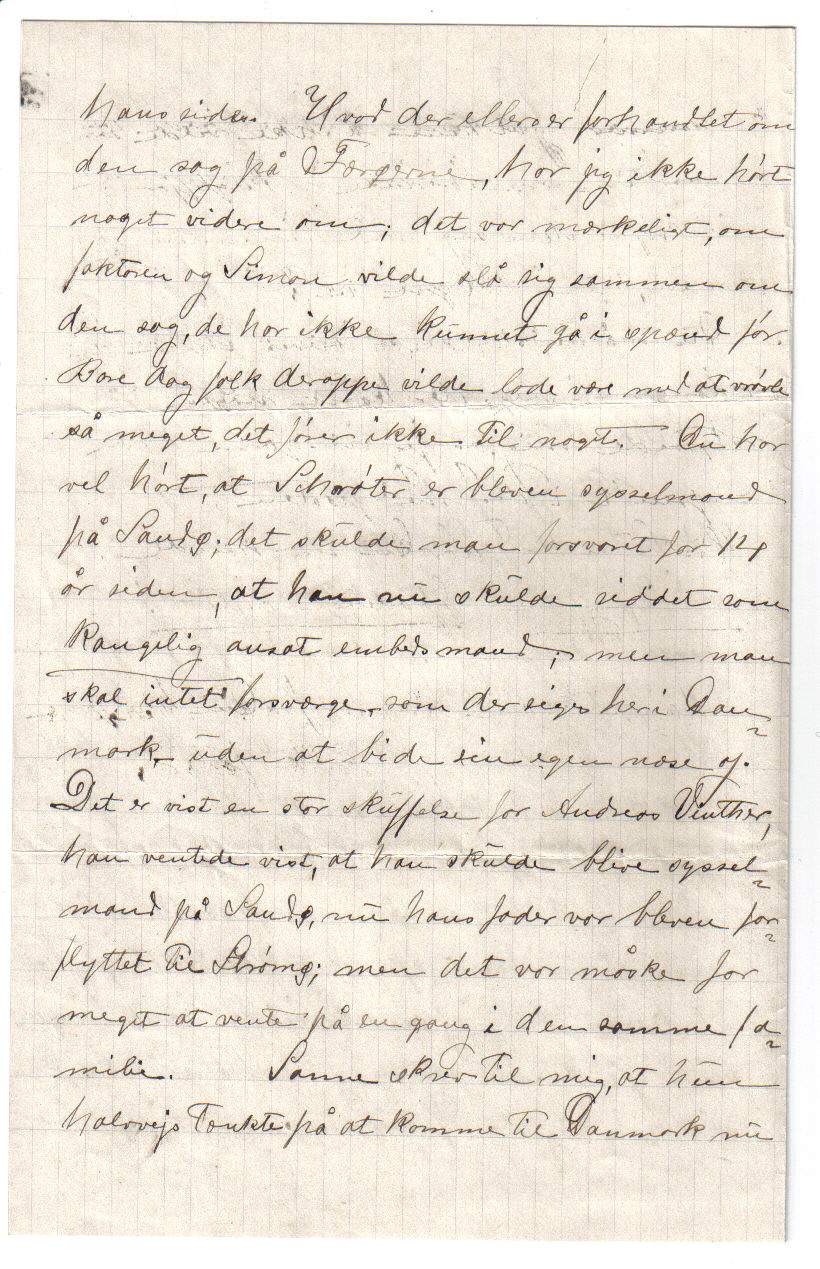 hans side. Hvad der ellers er forhandlet om
den sag på Færøerne, har jeg ikke hört
noget videre om; det var mærkeligt, om
faktoren og Simon vilde slå sig sammen om
den sag, de har ikke kunnet gå i spænd för.
Bare dog folk deroppe vilde lade være med at vrövle
så meget, det förer ikke til noget. Du har
vel hört, at Schröter er bleven sysselmand
på Sandø; det skulde man forsvoret for 14
år siden, at han nu skulde siddet som
kongelig ansat embedsmand; men man
skal intet forsværge, som der siges her i Dan=
mark, uden at bide sin egen næse af.
Det er vist en stor skuffelse for Andreas Vinther,
han ventede vist, at han skulde blive syssel=
mand på Sandø, nu hans fader var bleven for=
flyttet til Strömø; men det var måske for
meget at vente på en gang i den samme fa=
milie. Sanne skrev til mig, at hun
halvvejs tænkte på at komme til Danmark nu